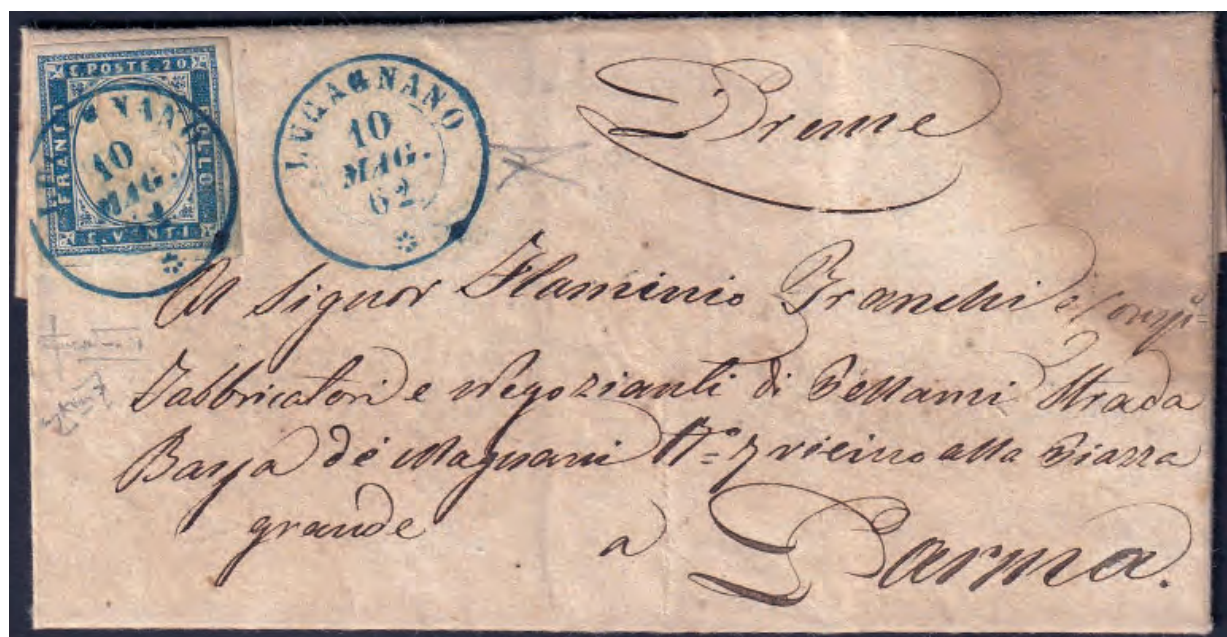 C. POSTE. 20
FRANCO
BOLLO
C. VENTI
10
MAG.
LUGAGNANO
10
MAG.
62
Preme
Al Signor Flaminio Franchi e Comp.
Fabbricatori e Negozianti di Pellami Strada
Bassa dei Magnani N.º 7 vicino alla Piazza
grande
a Parma.